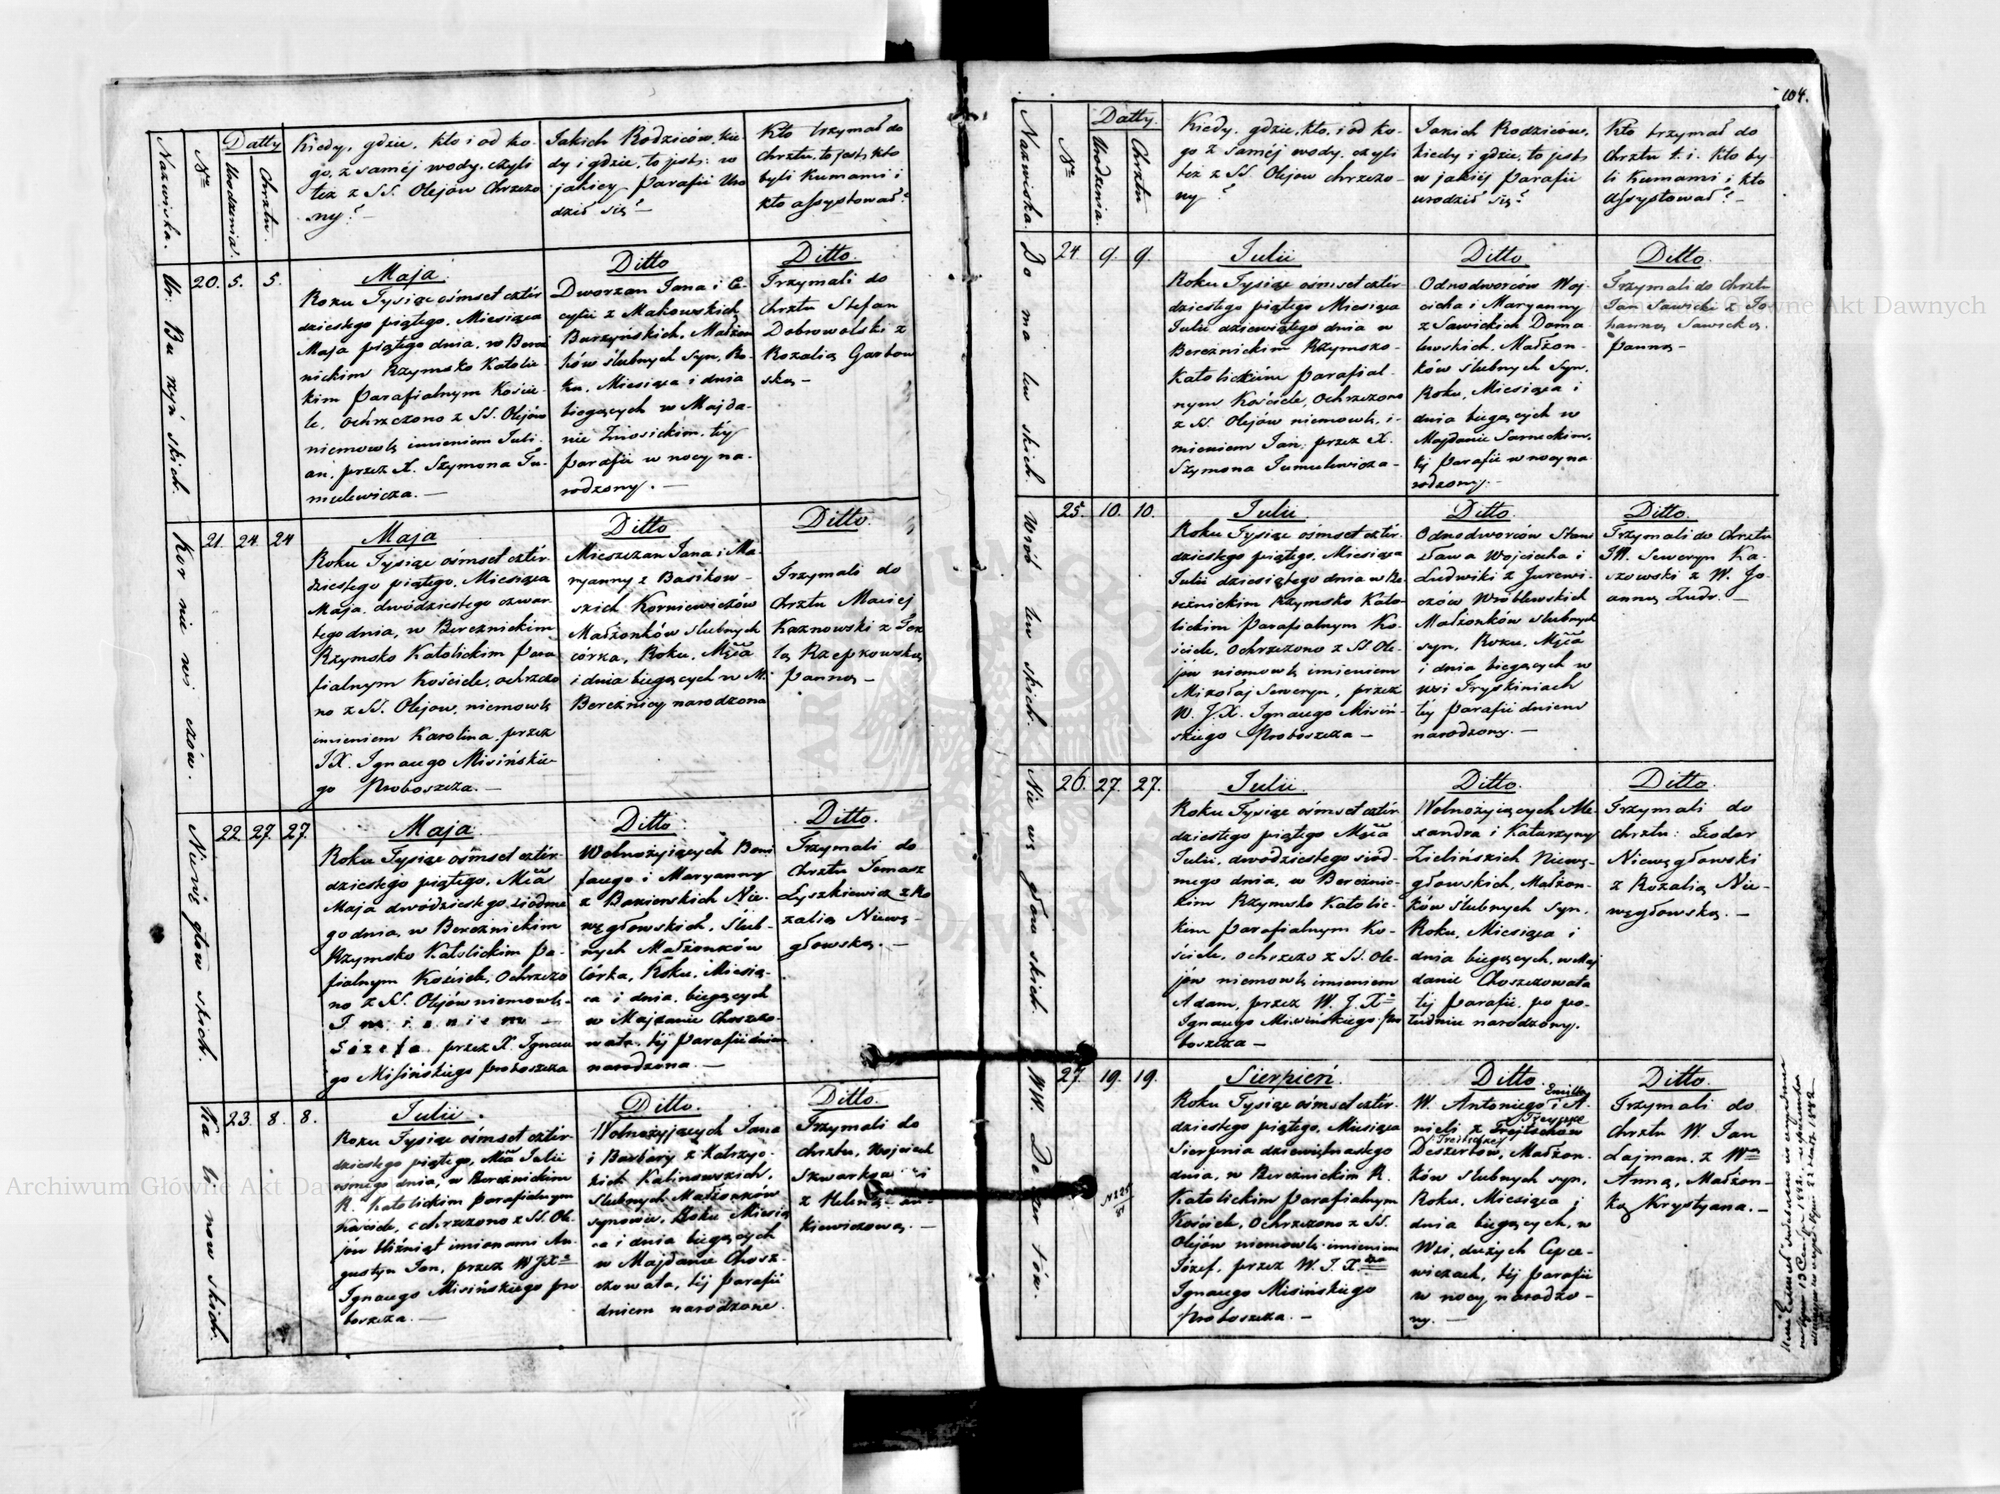 Nazwiska.
Nro
Datty
Urodzenia.
Chrztu.
Kiedy, gdzie, kto i od ko-
go, z saméj wody, czyli
też z SS. Olejów Chrzczo
ny? —
Jakich Rodziców, kie-
dy i gdzie, to jest: w
jakiey Parafii Uro
dził się? —
Kto trzymał do
Chrztu, to jest, kto
byli Kumami i
kto assystował?
Ur: Bu rzyń skich.
20. 5. 5.
Maja
Roku Tysiąc ośmset cztér
dziestego piątego, Miesiąca
Maja piątego dnia, w Bereź
nickim Rzymsko Katolic
kim Parafialnym Koście-
le, ochrzczono z SS. Olejów
niemowlę imieniem Juli-
an, przez X. Szymona Tu-
mulewicza. —
Ditto
Dworzan Jana i Ce-
cylii z Makowskich
Burzyńskich, Małżon
ków ślubnych syn, Ro-
ku, Miesiąca i dnia
bieżących w Majda-
nie Znosickim, téy
parafii w nocy na-
rodzony. —
Ditto.
Trzymali do
Chrztu Stefan
Dobrowolski z
Rozalią Garbow
ską —
Kor nie wi czów.
21. 24 24
Maja
Roku Tysiąc ośmset cztér-
dziestego piątego, Miesiąca
Maja, dwódziestego czwar-
tego dnia, w Bereznickim
Rzymsko Katolickim Para
fialnym Kościele, ochrzczo
no z SS. Olejow, niemowlę
imieniem Karolina, przez
JX. Ignacego Misińskie-
go Proboszcza. —
Ditto
Mieszczan Jana i Ma-
ryanny z Basikow-
skich Korniewiczów
Małżonków ślubnych
córka, Roku, Mścа
i dnia bieżących w M.
Bereznicy narodzona
Ditto.
Trzymali do
Chrztu Maciej
Kaznowski z Tek
lą Rzepkowską
Panną —
Niewę głow skich.
22. 27. 27.
Maja
Roku Tysiąc ośmset cztér-
dziestego piątego, Mścа
Maja dwódziestego siódme
go dnia, w Bereznickim
Rzymsko Katolickim Pa-
fialnym Kościele, Ochrzczo
no z SS. Olejów niemowlę-
Imieniem —
Józefa przez X. Ignace
go Misińskiego proboszcza
Ditto.
Wolnożyjących Boni
facego i Maryanny
z Baxierskich Nie-
węgłowskich, Ślub-
nych Małżonków
Córka, Roku, Miesią-
ca i dnia, bieżących
w Majdanie Choszczo-
wata, téj parafii dniem
narodzona. —
Ditto.
Trzymali do
Chrztu Tomasz
Łyszkiewicz z Ro
zalią Niewę-
głowską. —
Ka li now skich.
23. 8. 8.
Julii.
Roku Tysiąc ośmset cztér-
dziestego piątego, Mścа Julii
osmego dnia, w Bereznickim
R. Katolickim parafialnym
Kościele, ochrzczono z SS. Ole
jów bliźniąt imionami Au-
gustyn Jan, przez W JXa
Ignacego Misińskiego pro
boszcza. —
Ditto.
Wolnożyjących Jana
i Barbary z
Kalinowskich,
Slubnych Małżonków
synowie, Roku Miesią
ca i dnia bieżących
w Majdanie Chosz-
czowata, téj parafii
dniem narodzone.
Ditto.
Trzymali do
chrztu, Wojciech
z Heleną
kiewiczową. —
104.
Nazwiska.
Nro
Datty.
Urodzenia.
Chrztu
Kiedy, gdzie, kto, i od ko-
go z saméj wody, czyli
też z SS. Olejow chrzczo-
ny?
Jakich Rodziców,
kiedy i gdzie, to jest,
w jakiéj Parafii
urodził się?
Kto trzymał do
Chrztu t. i. kto by-
li Kumami i kto
Assystował? —
Do ma lew skich
24. 9. 9.
Julii
Roku Tysiąc ośmset cztér-
dziestego piątego Miesiąca
Julii dziewiątego dnia w
Bereznickim Rzymsko-
Katolickim Parafial-
nym Kościele, Ochrzczono
z SS. Olejów niemowlę, i-
mieniem Jan, przez X.
Szymona Tumulewicza —
Ditto
Odnodworców Woj-
ciecha i Maryanny
z Sawickich Doma
lewskich, Małżon-
ków ślubnych Syn,
Roku, Miesiąca i
dnia bieżących w
Majdanie Sarneckim,
téj Parafii w nocy na
rodzony. —
Ditto.
Trzymali do Chrztu
Jan Sawicki z Jo-
hanną Sawicką
panną —
Wrób lew skich.
25. 10. 10.
Julii
Roku Tysiąc ośmset cztér-
dziestego piątego, Miesiąca
Julii dziesiątego dnia w Be-
reźnickim Rzymsko Kato-
lickim Parafialnym Ko-
ściele, Ochrzczono z SS Ole-
jów niemowlę imieniem
Mikołaj Seweryn, przez
W. J.X. Ignacego Misiń-
skiego Proboszcza —
Ditto.
Odnodworców Stani
sława Wojciecha i
Ludwiki z Jurewi-
czów Wróblewskich
Małżonków ślubnych
syn, Roku, Mścа
i dnia bieżących w
wsi Tryskiniach
téj Parafii dniem
narodzony. —
Ditto.
Trzymali do Chrztu
JW. Seweryn Ka-
szowski z W. Jo-
anną Zudr. —
Nie wę głow skich.
26. 27. 27.
Julii.
Roku Tysiąc ośmset cztér
dziestego piątego Mścа
Julii, dwódziestego siód-
mego dnia, w Bereźnic-
kim Rzymsko Katolic-
kim Parafialnym Ko-
ściele, ochrzczo z SS. Ole-
jów niemowlę imieniem
Adam, przez W. J. Xa
Ignacego Misińskiego Pro
boszcza —
Ditto.
Wolnożyjących Ale-
xandra i Katarzyny
Zielińskich Niewę-
głowskich, Małżon-
ków Slubnych Syn,
Roku, Miesiąca i
dnia bieżących, w Maj
danie Choszczowata
téj Parafii, po po-
łudniu narodzony.
Ditto.
Trzymali do
chrztu: Teodor
Niewęgłowski
z Rozalią Nie-
węgłowską. —
WW. De zer tów.
27. 19. 19.
Sierpień.
Roku Tysiąc ośmset cztér-
dziestego piątego, Miesiąca
Sierpnia dziewiętnastego
dnia, w Bereznickim R.
Katolickim Parafialnym
Kościele, Ochrzczono z SS.
Olejów niemowlę imieniem
Józef, przez W. J. X.
Ignacego Misińskiego
Proboszcza. —
Ditto
Emilii
W. Antoniego i A-
nieli z Trejtschów
Deszertów, Małżon-
ków Slubnych syn,
Roku, Miesiąca i
dnia bieżących, w
Wsi, dużych Cepce-
wiczach, téj parafii
w nocy narodzo-
ny. —
Ditto.
Trzymali do
chrztu W. Jan
Lajman, z Wną
Anną, Małżon-
ką Krystyana. —
Archiwum Główne Akt Dawnych
Archiwum Główne Akt Dawnych